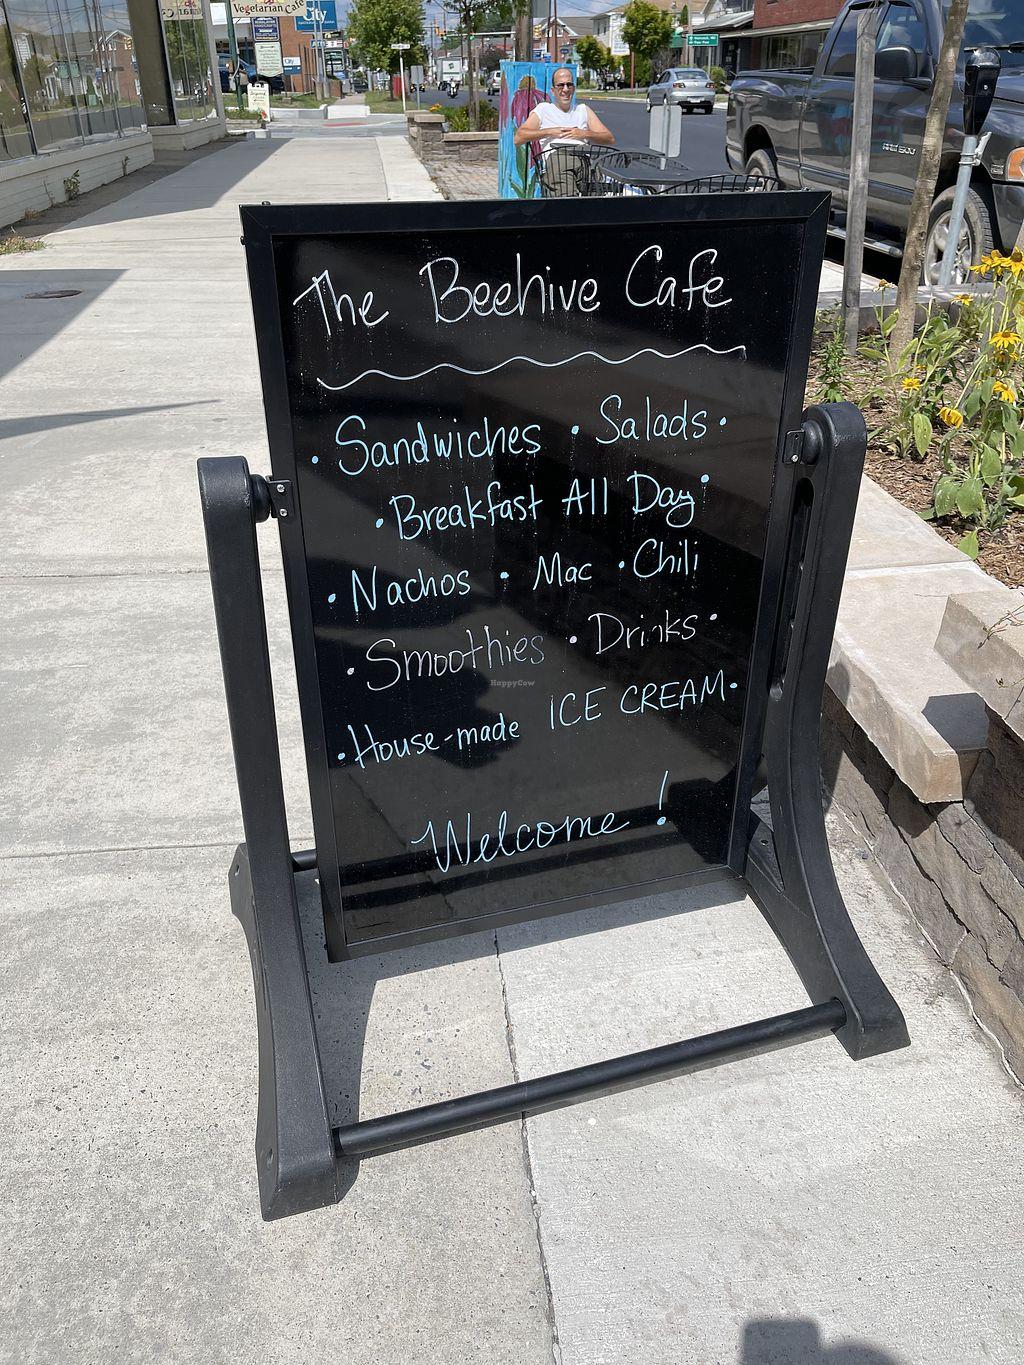 Vegetarian Cafe
City
The Beehive Cafe
• Sandwiches • Salads •
• Breakfast All Day •
• Nachos • Mac • Chili
• Smoothies • Drinks •
HappyCow
• House-made ICE CREAM •
Welcome!